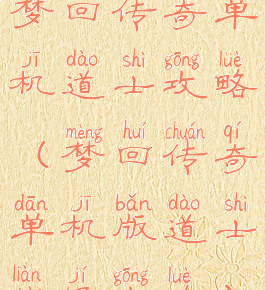 梦回传奇单
jī dào shì gōng lüè
机道士攻略
mèng huí chuán qí
（梦回传奇
dān jī bǎn dào shì
单机版道士
liàn jí gōng lüè